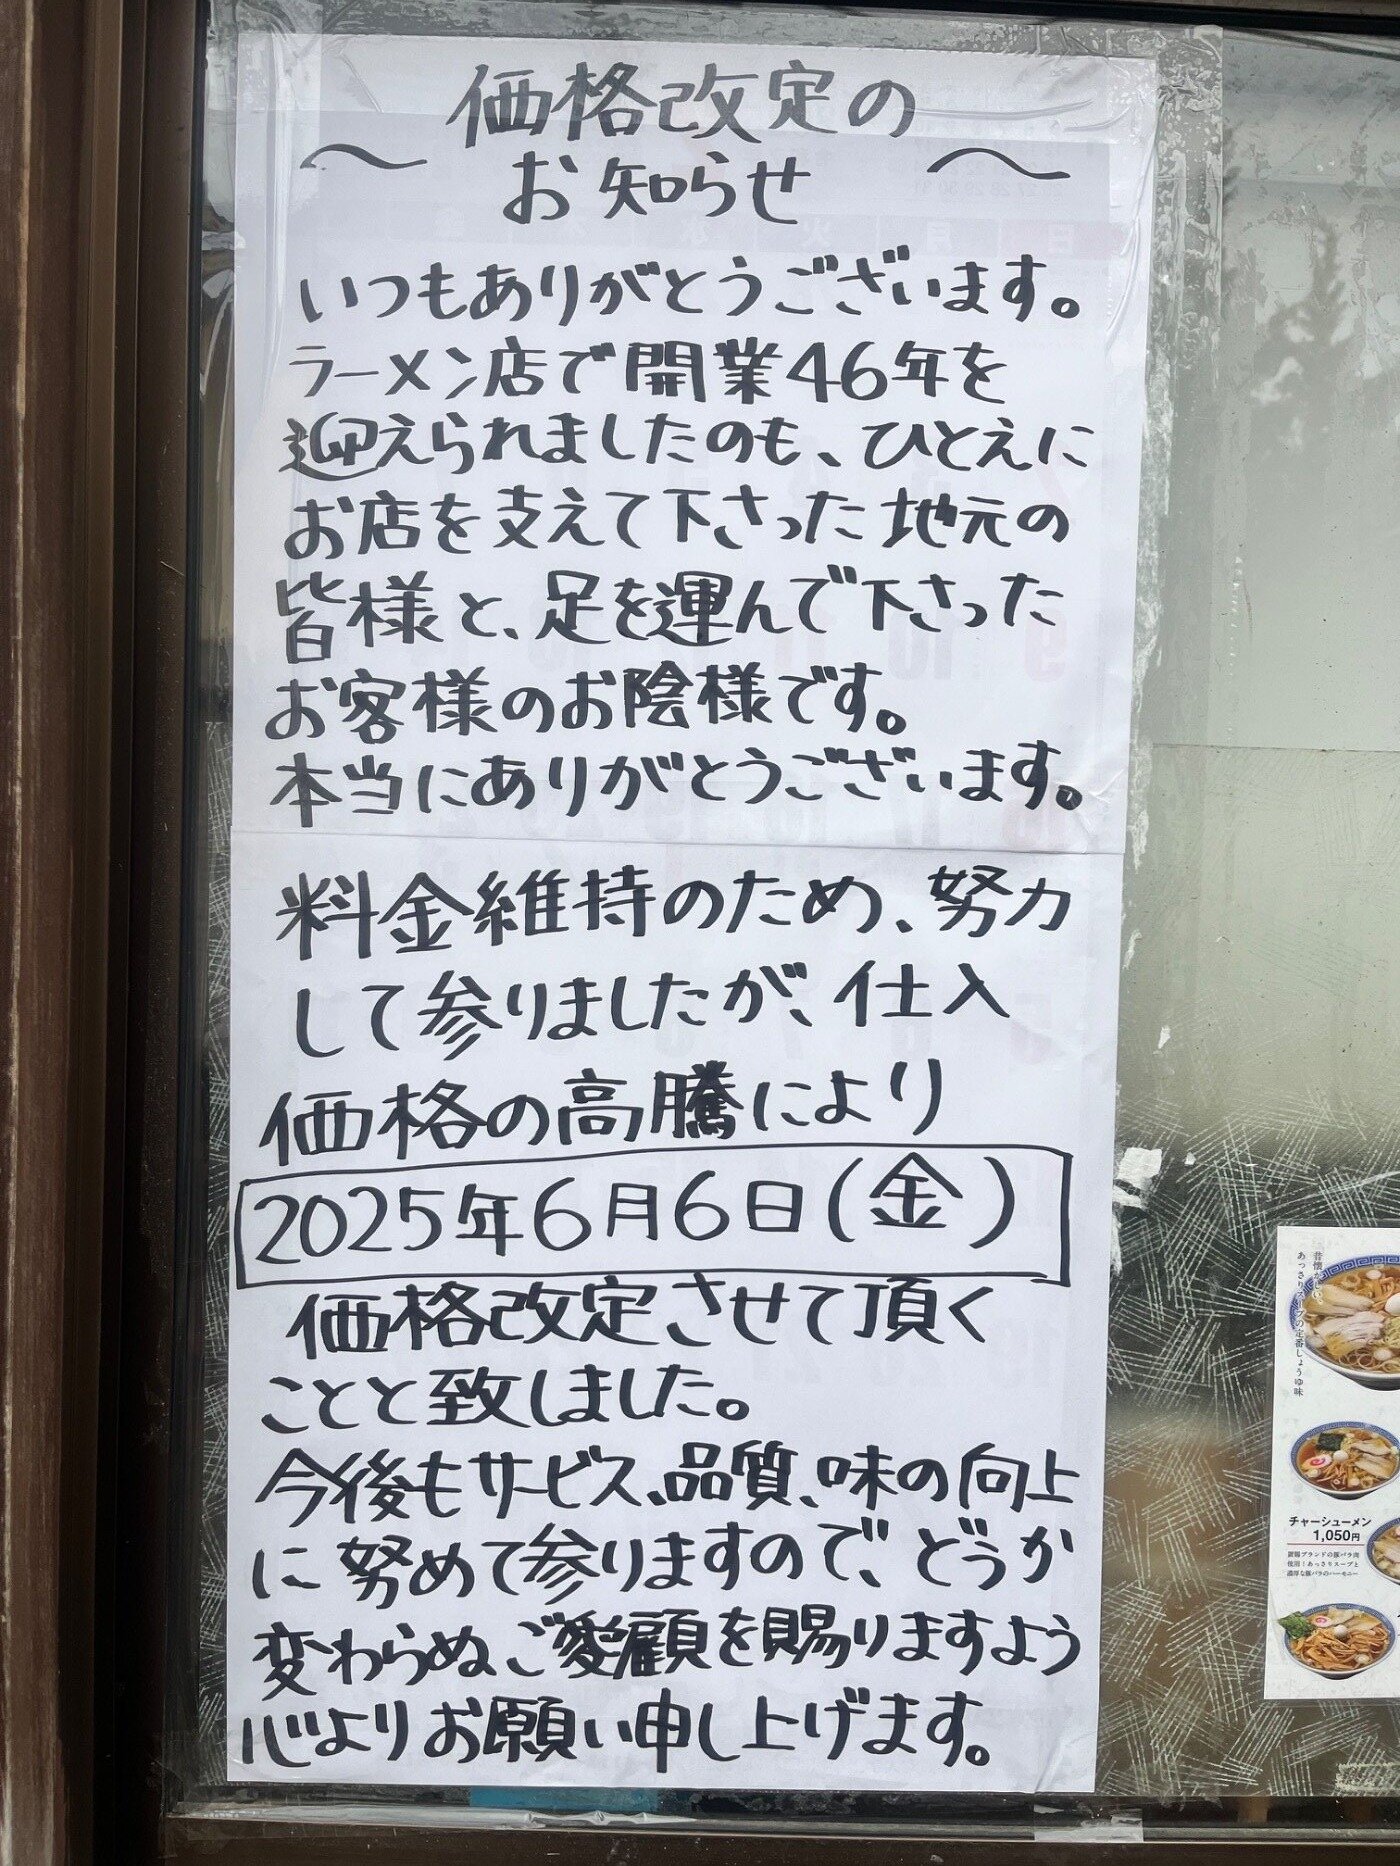 価格改定の
〜お知らせ〜
いつもありがとうございます。
ラーメン店で開業46年を
迎えられましたのも、ひとえに
お店を支えて下さった地元の
皆様と、足を運んで下さった
お客様のお陰様です。
本当にありがとうございます。
料金維持のため、努力
して参りましたが、仕入
価格の高騰により
2025年6月6日(金)
価格改定させて頂く
ことと致しました。
今後もサービス、品質、味の向上
に努めて参りますので、どうか
変わらぬご愛顧を賜りますよう
心よりお願い申し上げます。
あっさりスープの定番しょうゆ味
チャーシューメン
1,050円